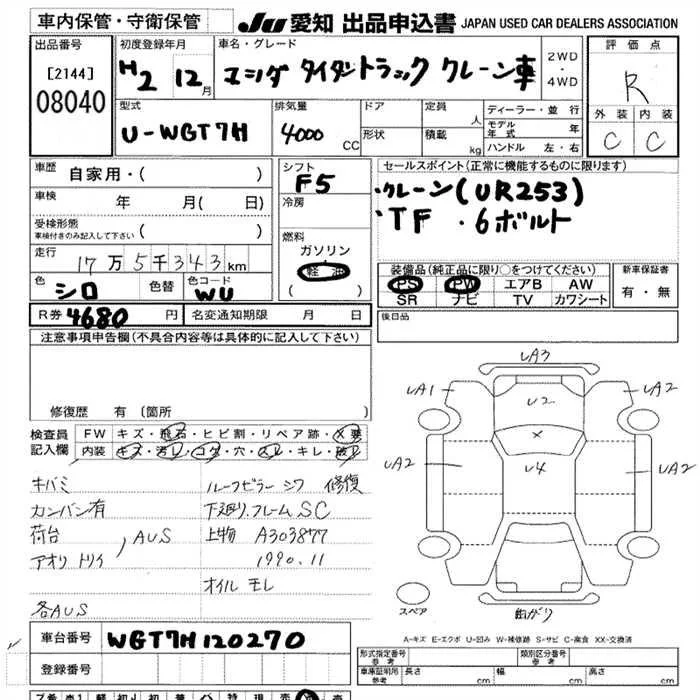 車内保管・守衛保管
JU 愛知 出品申込書 JAPAN USED CAR DEALERS ASSOCIATION
出品番号
[2144]
08040
初度登録年月
H2 12月
車名・グレード
マツダ タイタントラック クレーン車
2WD
・
4WD
評価点
R
外装 内装
C C
型式
U-WGT7H
排気量
4000 CC
ドア
形状
定員 人
積載 kg
ディーラー・並行
モデル年式 年
ハンドル 左・右
車歴
自家用・( )
車検
年 月( 日)
受検形態
車検付きのみ記入して下さい
( )
走行
17万5千343km
色
シロ
色替
色コード
WU
シフト
F5
冷房
燃料
ガソリン
軽油
( )
セールスポイント(正常に機能するものに限ります)
・クレーン(UR253)
・TF ・6ボルト
装備品(純正品に限り○をつけてください)
PS PW エアB AW
SR ナビ TV カワシート
新車保証書
有・無
R券 4680 円
名変通知期限 月 日
後日品
注意事項申告欄(不具合内容等は具体的に記入して下さい)
修復歴 有 (箇所 )
検査員
記入欄
FW キズ・飛石・ヒビ割・リペア跡・X要
内装 キズ・汚レ・コゲ・穴・スレ・キレ・破レ
キバミ
カンバン有
荷台
アオリ トリイ
, AUS
各AUS
ルーフピラー シワ 修復
下廻り.フレームSC
上物 A303877
1990.11
オイル モレ
UA3
UA1
UA2
U2
X
UA2
U4
UA2
スペア
曲がり
A-キズ E-エクボ U-凹み W-補修跡 S-サビ C-腐食 XX-交換済
車台番号
WGT7H120270
登録番号
形式指定番号
参考
類別区分番号
参考
車庫証明用
参考
長さ cm
幅 cm
高さ cm